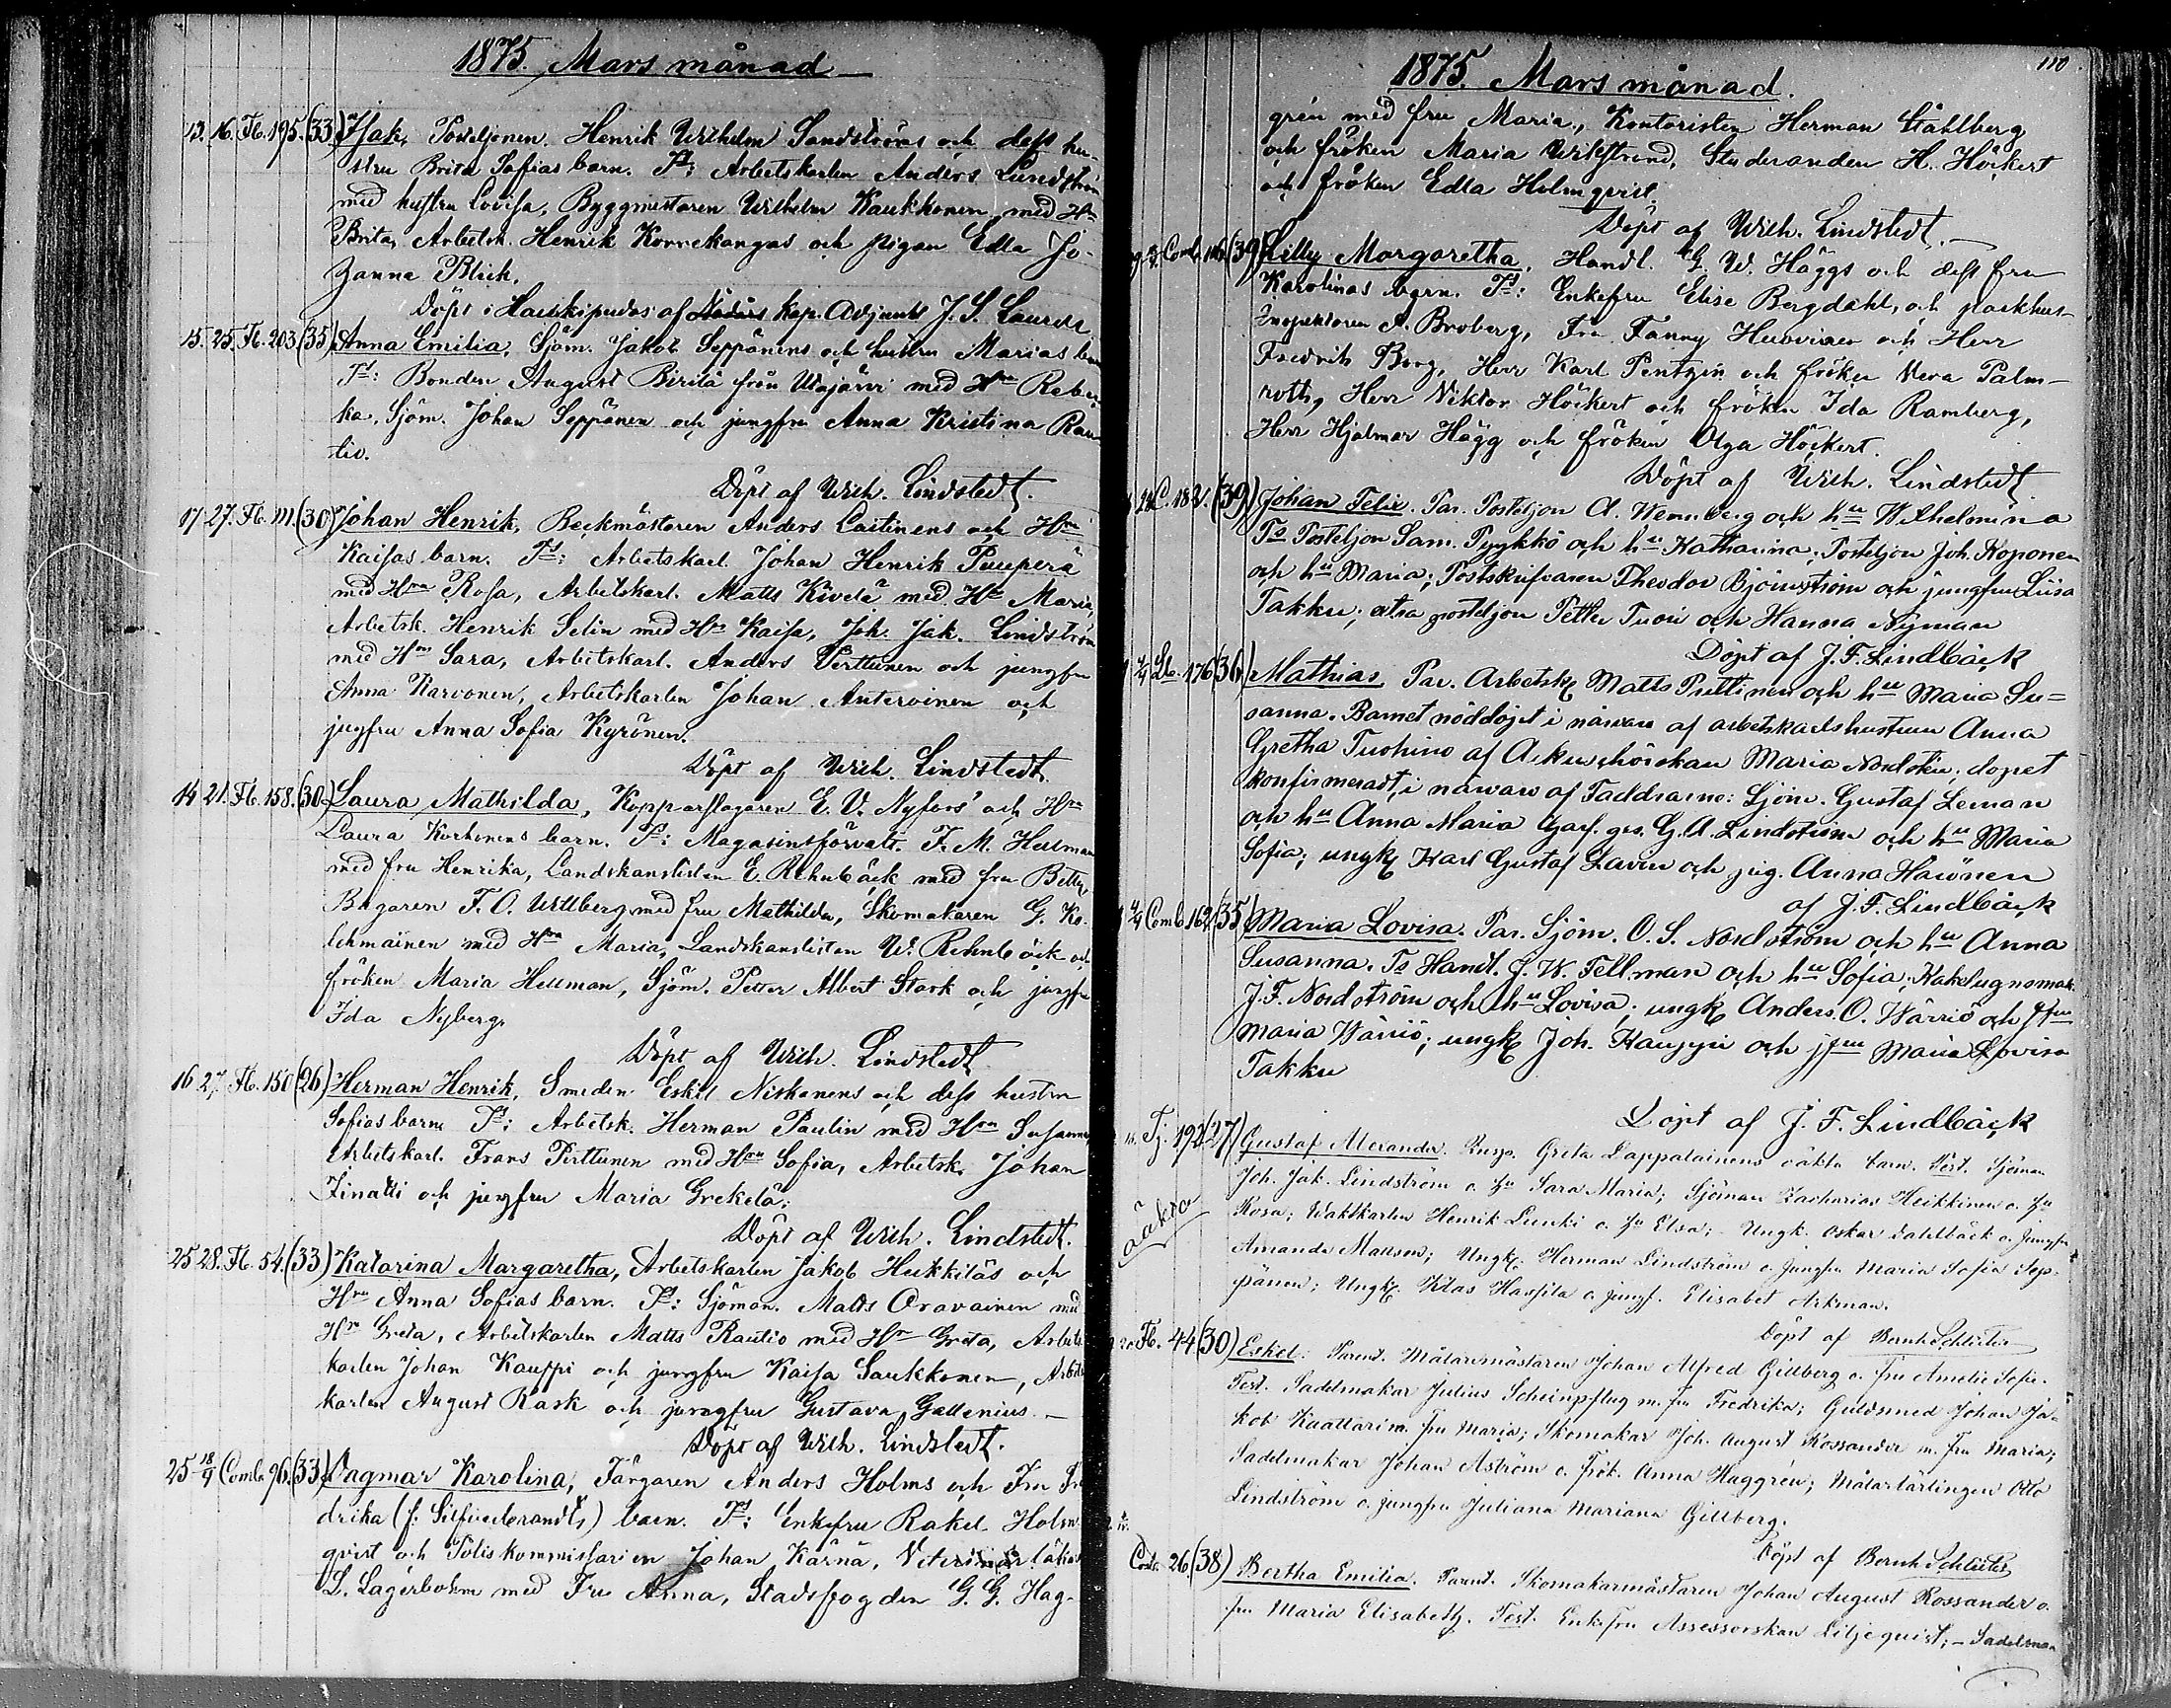 1875. Mars månad
13. 16. Fl. 195. (33) Isak, Posteljonen Henrik Wilhelm Sandströms och dess hu-
stru Brita Sofias barn. Ts: Arbetskarlen Anders Lundström
med hustru Lovisa, Byggmestaren Wilhelm Kaukkonen med Hu
Brita, Arbetsk. Henrik Korrekangas och pigan Edla Jo-
Blick.
Döpt i Haukipudas af Kap. Adjunkt J. S. Laurell
15. 25. Fl. 203 (35) Anna Emilia, Sjöm. Jakob Seppänens och hustru Marias barn
Ts: Bonden August Pirilä från Utajärvi med Hru Rebec-
ka, Sjöm. Johan Seppänen och jungfru Anna Kristina Rau-
tio.
Döpt af Wilh. Lindstedt.
17. 27. Fl. 111. (30) Johan Henrik, Beckmästaren Anders Laitinens och Hru
Kaisas barn. Ts: Arbetskarl. Johan Henrik Puuperä
med Hru Rosa, Arbetskarl. Matts Kivelä med Hu Maria,
Arbetsk. Henrik Selin med Hu Kaisa, Joh. Jak. Lindström
med Hru Sara, Arbetskarl. Anders Perttunen och jungfru
Anna Karvonen, Arbetskarlen Johan Antervinen och
jugfru Anna Sofia Kyrönen.
Döpt af Wilh. Lindstedt.
14 21. Fl. 158. (30) Laura Mathilda, Kopparslagaren E. V. Nyfors' och Hru
Laura Korhonens barn. Ts: Magasinsförvalt. F. M. Hellman
med fru Henrika, Landskanslisten E. Rehnbäck med fru Betty,
Bagaren F. O. Uttberg med fru Mathilda, Skomakaren G. Ko-
lehmainen med Hru Maria, Landskanslisten W. Rehnbäck och
fröken Maria Hellman, Sjöm. Petter Albert Stark och jungfru
Ida Nyberg.
Döpt af Wilh. Lindstedt.
16 27. Fl. 150 (26) Herman Henrik, Smeden Eskil Niskanens och dess hustru
Sofias barn. Ts: Arbetsk. Herman Paulin med Hru Susanna
Arbetskarl. Frans Perttunen med Hru Sofia, Arbetsk. Johan
Jinatti och jungfru Maria Grekelä.
Döpt af Wilh. Lindstedt.
25 28. Fl. 54. (33) Katarina Margaretha, Arbetskarlen Jakob Heikkiläs och
Hru Anna Sofias barn. Ts: Sjöman. Matts Oravainen med
Hr Greta, Arbetskarlen Matts Rautio med Hr Greta, Arbets
karlen Johan Kauppi och jungfru Kaisa Saukkonen, Arbets
karlen August Rask och jungfru Gustava Gallenius.
Döpt af Wilh. Lindstedt.
25 18/4 Comb. 96. (33) Dagmar Karolina, Färgaren Anders Holms och Fru Fre
drika (f. Silfverbrandts) barn. Ts: Enkefru Rakel Holm-
qvist och Poliskommissarien Johan Kärnä, Veterinärläkar
L. Lagerbohm med Fru Anna, Stadsfogden G. G. Hag-
110
1875. Mars månad.
grén med fru Maria, Kontoristen Herman Ståhlberg
och fröken Maria Wikstrand, Studeranden H. Höckert
och fröken Edla Holmqvist.
Döpt af Wilh. Lindstedt.
Comb. 106 (39) Lilly Margaretha, Handl. G. W. Häggs och dess fru
Karolinas barn. Ts: Enkefru Elise Bergdahl, och packhus-
Inspektoren A. Broberg, Fru Fanny och Herr
Fredrik Borg, Herr Karl Pentzin och fröken Vera Palm-
roth, Herr Viktor Höckert och fröken Ida Ramberg,
Herr Hjalmar Hägg och fröken Olga Höckert.
Döpt af Wilh. Lindstedt.
182. (39) Johan Felix. Par. Posteljon A. Wennberg och hu Wilhelmina
Ts Posteljon Sam. Pyykkö och hu Katharina; Posteljon Joh. Koponen
och hu Maria; Postskrifvaren Theodor Björnström och jungfru Liisa
Takku; posteljon Petter Tuori och Hanna Nyman
Döpt af J. F. Lindbäck
176 (36) Mathias. Par. Arbetsk. Matts Pulttinen och hu Maria Su=
sanna. Barnet nöddöpt i närvaro af arbetskarlshustrun Anna
Gretha Tuohino af Ackuschörskan Maria Nordstén; dopet
konfirmeradt i närvaro af Faddrarne: Sjöm. Gustaf Leman
och hu Anna Maria Garf. ges. G. A. Lindström och hu Maria
Sofia; ungk. Karl Gustaf Lavin och jug. Anna Havonen
af J. F. Lindbäck
Comb. 162 (35) Maria Lovisa. Par. Sjöm. O. S. Nordström och hu Anna
Susanna. Ts Handl. J. W. Fellman och hu Sofia; Kakelugnsmak.
J. F. Nordström och hu Lovisa; ungk. Anders O. Wärriö och jfru
Maria Wärriö; ungk. Joh. Kauppi och jfru Maria Lovisa
Takku
Döpt af J. F. Lindbäck
Tj. 192 (27) Gustaf Alexander. Greta Lappalainens oäkta barn. Test. Sjöman
Joh. Jak. Lindström o. hu Sara Maria; Sjöman Zacharias Heikkinen o. hu
oäkta
Rosa; Waktkarlen Henrik Luuki o. hu Elsa; Ungk. Oskar Dahlbäck o. jungfru
Amanda Mattson; Ungk. Herman Lindström o. jungfru Maria Sofia Sep-
pänen; Ungk. Klas Hassila o. jungf. Elisabet Arkman.
Döpt af Bernh Schlüter
Fl. 44 (30) Eskel. Parent. Målarmästaren Johan Alfred Gillberg o. fru Amelie Sofie.
Test. Sadelmakar Julius Scheinpflug m. fru Fredrika; Guldsmed Johan Ja-
kob Kaattari m. fru Maria; Skomakar Joh. August Rossander m. fru Maria;
Sadelmakar Johan Åström o. frök. Anna Haggrén; Målarlärlingen Otto
Lindström o. jungfru Juliana Mariana Gillberg.
Döpt af Bernh Schlüter
Comb. 26. (38) Bertha Emilia. Parent. Skomakarmästaren Johan August Rossander o.
fru Maria Elisabeth. Test. Enkefru Assessorskan Liljequist; Sadelma